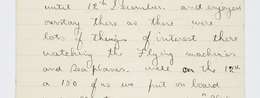 until 12th December. and enjoyed
our stay there as there were
lots of things of interest there
watching the Flying machines
and Sea planes. well on the 12th
a 150 of us were put on board